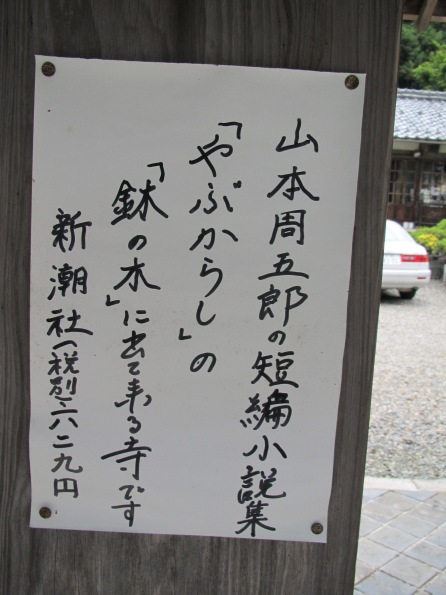 山本周五郎の短編小説集
「やぶからし」の
「鉢の木」に出て来る寺です
新潮社(税別)六二九円